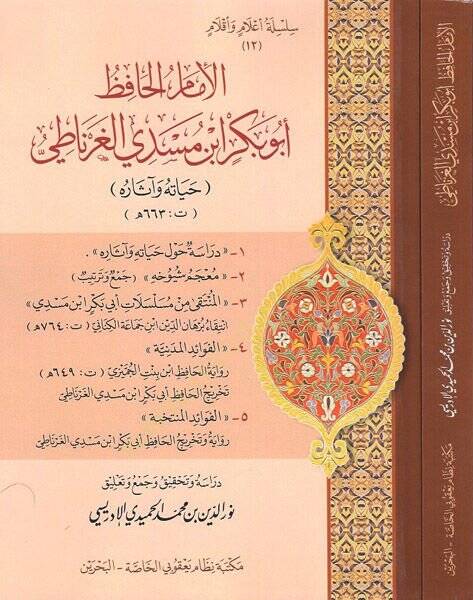 سِلْسِلَة أعْلَام وَأقْلَام
(١٢)
الإمَامُ الحَافِظُ
أبُو بَكْرِ ابْنُ مُسْدِي الغَرْنَاطِيُّ
(حَيَاتُهُ وَآثَارُه)
(ت: ٦٦٣هـ)
١- «دِرَاسَةٌ حَوْلَ حَيَاتِهِ وَآثَارِهِ».
٢- «مُعْجَمُ شُيُوخِهِ» (جَمْعٌ وَتَرْتِيبٌ)
٣- «المُنْتَقَى مِنْ مُسَلْسَلَاتِ أبِي بَكْرِ ابْنِ مَسْدِي»
انْتِقَاءُ بُرْهَانِ الدِّينِ ابْنِ جَمَاعَةَ الكِنَانِيِّ (ت: ٧٦٤هـ)
٤- «الفَوَائِدُ المَدَنِيَّة»
رِوَايَةُ الحَافِظِ ابْنِ بِنْتِ الجُمَّيْزِي (ت: ٦٤٩هـ)
تَخْرِيجُ الحَافِظِ أبِي بَكْرِ ابْنِ مَسْدِي الغَرْنَاطِيِّ
٥- «الفَوَائِدُ المُنْتَخَبَة»
رِوَايَةُ وَتَخْرِيجُ الحَافِظِ أبِي بَكْرِ ابْنِ مَسْدِي الغَرْنَاطِيِّ
دِرَاسَة وَتَحْقِيق وَجَمْع وَتَعْلِيق
نُورُ الدِّينِ بْنُ مُحَمَّدٍ الحُمَيْدِيُّ الإدْرِيسِيُّ
مَكْتَبَة نِظَام يَعْقُوبِي الخَاصَّة - البَحْرَيْن
الإمَامُ الحَافِظُ أبُو بَكْرِ ابْنُ مُسْدِي الغَرْنَاطِيُّ
دراسة وتحقيق وجمع وتعليق
نور الدين بن محمد الحميدي الإدريسي
مكتبة نظام يعقوبي الخاصة - البحرين